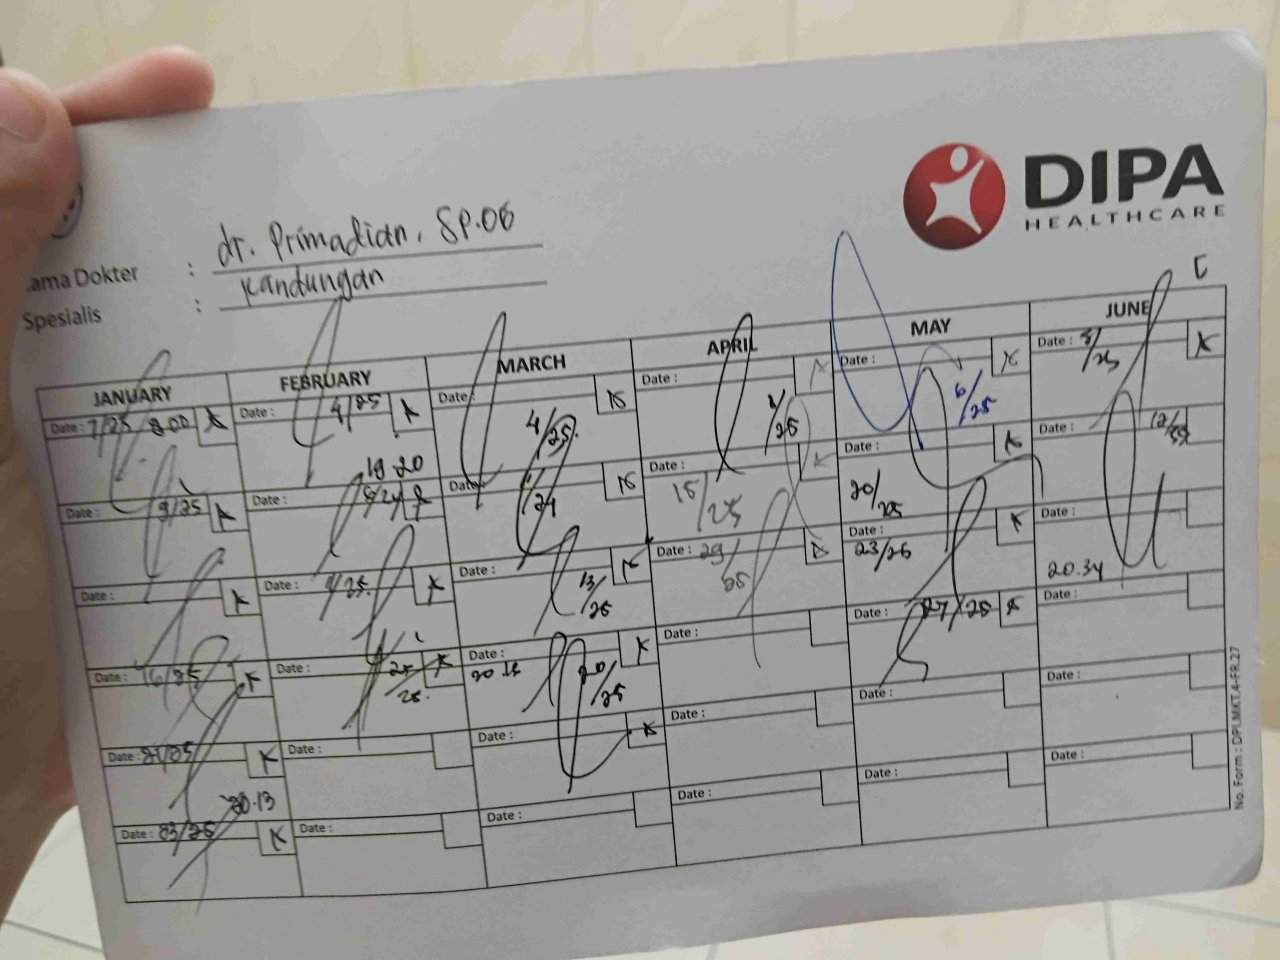 DIPA
HEALTHCARE
ama Dokter : dr. Primadian, SP.OG
Spesialis : Kandungan
JANUARY FEBRUARY MARCH APRIL MAY JUNE
Date : 7/25 8.00
Date : 4/25
Date : 4/25
Date :
Date : 6/25
Date : 3/25
Date : 9/25
19.20
Date :
Date :
Date : 15/25
Date : 20/25
Date :
Date :
Date :
Date : 13/25
Date : 29/25
Date : 23/25
Date :
20.34
Date : 16/25
Date : 25/25
Date : 20/25
Date :
Date : 27/25
Date :
Date : 21/25
Date :
Date :
Date :
Date :
Date :
20.13
Date : 23/25
Date :
Date :
Date :
Date :
Date :
No. Form : DPI.MKT.4-FR.27